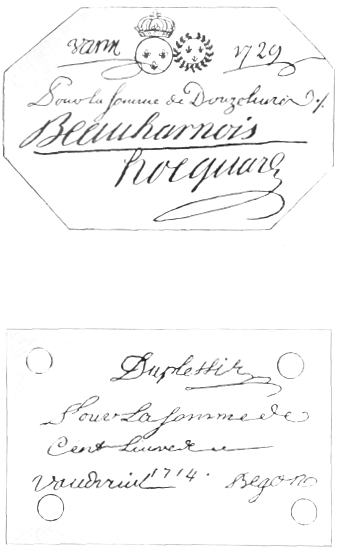 Varin 1729
Pour la somme de Douze livres
Beauharnois
hocquart
Duplessis
Pour La somme de
Cent Livres
Vaudreuil 1714. Begon